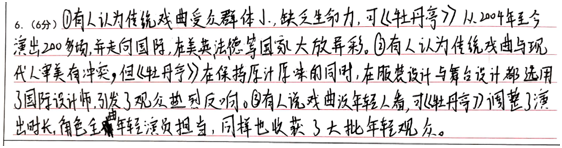 6. (6分) ①有人认为传统戏曲受众群体小,缺乏生命力,可《牡丹亭》从2004年至今
演出200多场,并走向国际,在美英法德等国家大放异彩。②有人认为传统戏曲与现
代人审美有冲突,但《牡丹亭》在保持原汁原味的同时,在服装设计与舞台设计都选用
了国际设计师,引发了观众热烈反响。③有人说戏曲没年轻人看,可《牡丹亭》调整了演
出时长,角色全由年轻演员担当,同样也收获了大批年轻观众。